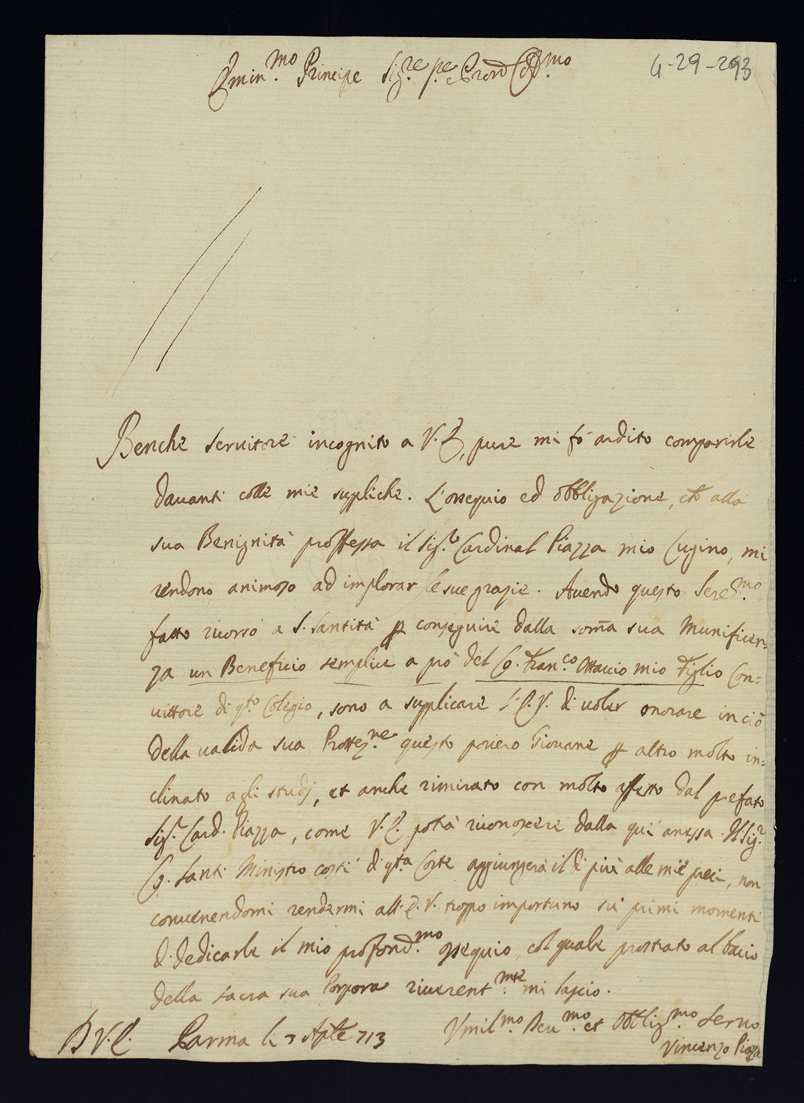 Emin.mo Principe Sig.re p.e Prone Col.mo
4-29-293
Benche seruitore incognito a V. E., pure mi fo ardito comparirle
dauanti colle mie suppliche. L'ossequio ed obbligazione, che alla
sua Benignità proffessa il Sig.r Cardinal Piazza mio Cugino, mi
rendono animoso ad implorar le sue grazie. Auendo questo Sere.mo
fatto ricorso a S. Santità p conseguire dalla soma sua Munificen-
za un Beneficio semplice a prò del Co. Fran.co Ottauio mio Figlio Con-
uittore di q.to Colegio, sono a supplicare l'E. V. di uoler onorare in ciò
della ualida sua Prottez.ne questo pouero Giouane p altro molto in-
clinato agli studj, et anche rimirato con molto affetto dal prefato
Sig.r Card. Piazza, come V. E. potrà riconoscere dalla qui anessa. Il Sig.r
Co. Santi Ministro costì di q.ta Corte aggiungerà il di più alle mie preci, non
conuenendomi rendermi all'E. V. troppo importuno su primi momenti
di dedicarle il mio profond.mo ossequio, col quale prostrato al bacio
della sacra sua Porpora riuerent.mte mi lascio.
D V. E. Parma li 7 Aple 713
Vmil.mo Deu.mo et Obblig.mo Seruo
Vincenzo Piazza